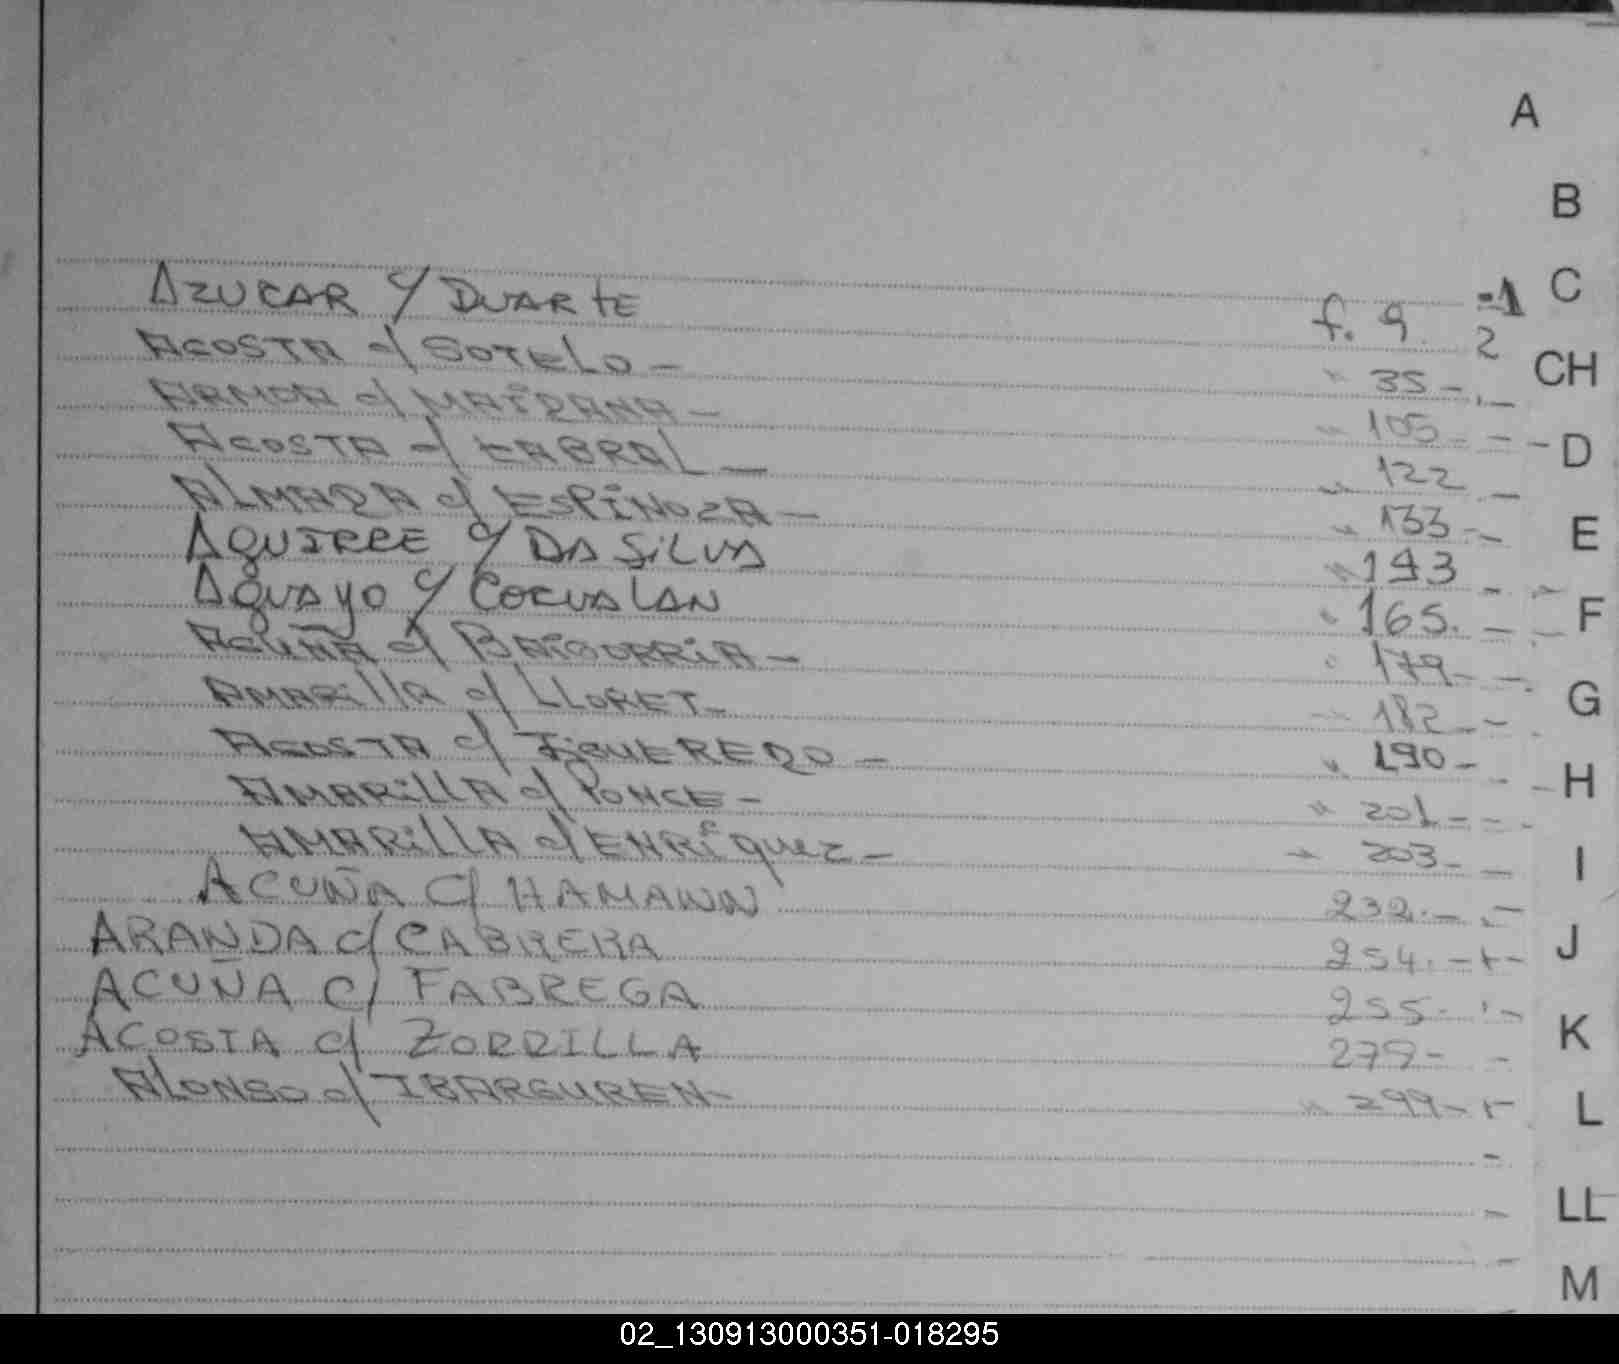 A
B
AZUCAR c/ DUARTE f. 9 -1 C
ACOSTA c/ SOTELO - " 35 - 2 CH
ARMOA c/ MAIDANA - " 105 - D
ACOSTA c/ CABRAL - " 122
ALMADA c/ ESPINOZA - " 133 - E
AGUIRRE c/ DA SILVA " 143
AGUAYO c/ CORVALAN " 165. F
ACUÑA c/ BAIGORRIA - " 179 -
AMARILLA c/ LLORET - " 182 - G
ACOSTA c/ FIGUEREDO - " 190 -
AMARILLA c/ PONCE - " 201 - H
AMARILLA c/ ENRIQUEZ - " 203 - I
ACUÑA C/ HAMANN 232. -
ARANDA c/ CABRERA 254. - J
ACUÑA C/ FABREGA 255 -
ACOSTA c/ ZORRILLA 279 - K
ALONSO c/ IBARGUREN - " 299 - L
LL
M
02_130913000351-018295